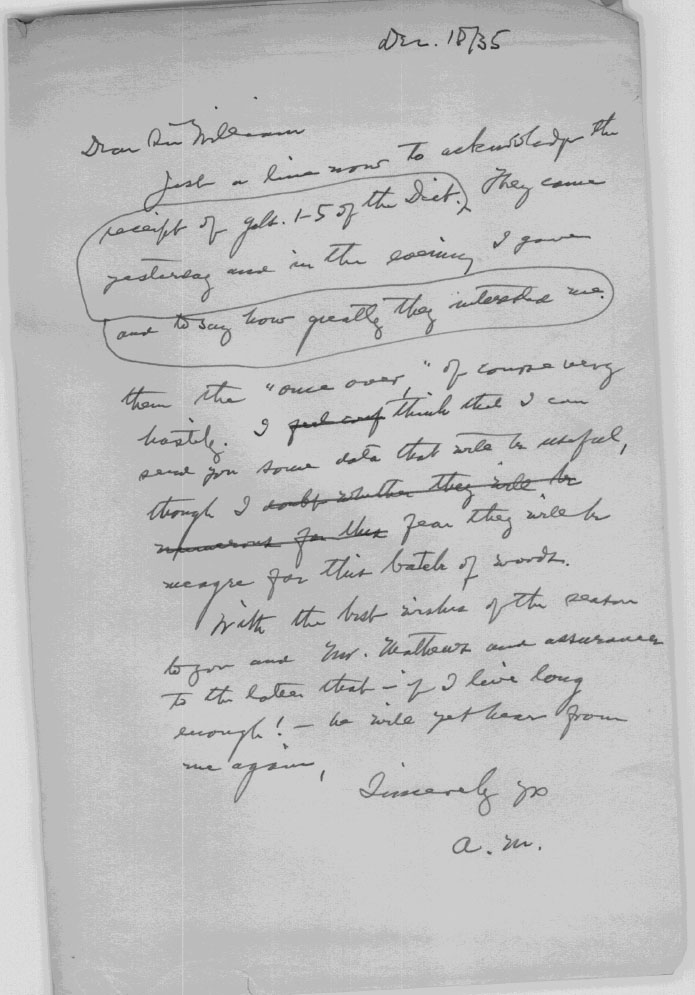 Dec. 18/35
Dear Sir William
Just a line now to acknowledge the
receipt of gals. 1-5 of the Dict. They came
yesterday and in the evening I gave
and to say how greatly they interested me.
them the "once over," of course very
hastily. I feel conf think that I can
send you some data that will be useful,
though I doubt whether they will be
numerous for this fear they will be
meagre for this batch of words.
With the best wishes of the season
to you and Mr. Mathews and assurances
to the latter that – if I live long
enough! – he will yet hear from
me again,
Sincerely yrs
A. M.